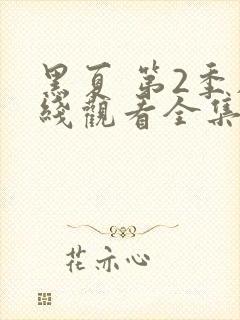 黑夏 第2季
綫觀看全集
花亦心